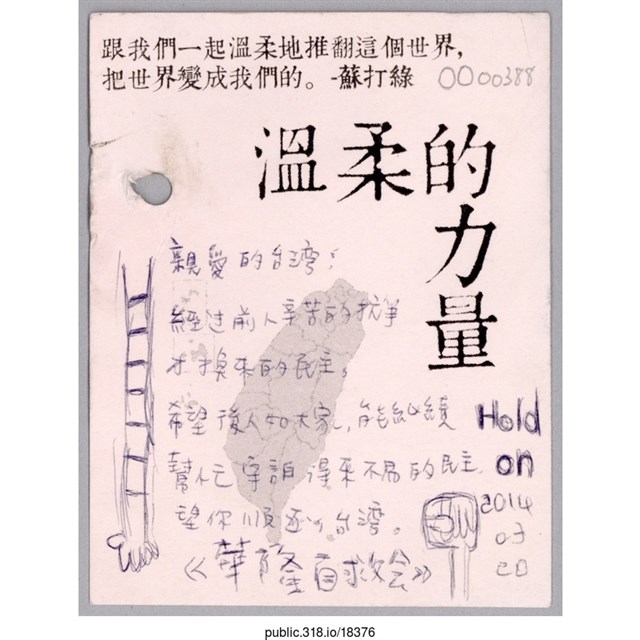 跟我們一起溫柔地推翻這個世界,
把世界變成我們的。-蘇打綠 0000388
溫柔的
力量
親愛的台灣:
經过前人辛苦的抗爭
才換來的民主。
希望後人如大家,能継續
幫忙守護得來不易的民主
望你順逐,台湾。
《華隆自救会》
Hold
on
2014
03
20
public.318.io/18376